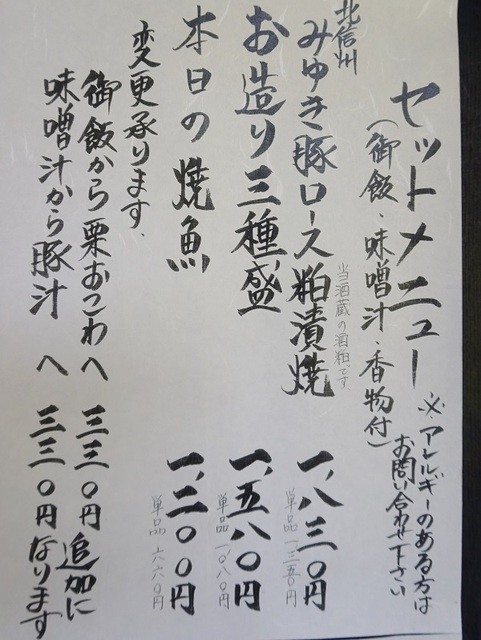 セットメニュー
(御飯・味噌汁・香物付)
※アレルギーのある方は
お問い合わせ下さい
北信州
みゆき豚ロース粕漬焼
当酒蔵の酒粕です。
一、八三〇円
単品 一、三五〇円
お造り三種盛
一、五八〇円
単品 一、〇八〇円
本日の焼魚
一、二〇〇円
単品 六六〇円
変更承ります、
御飯から栗おこわへ 三三〇円追加に
味噌汁から豚汁へ 三三〇円なります